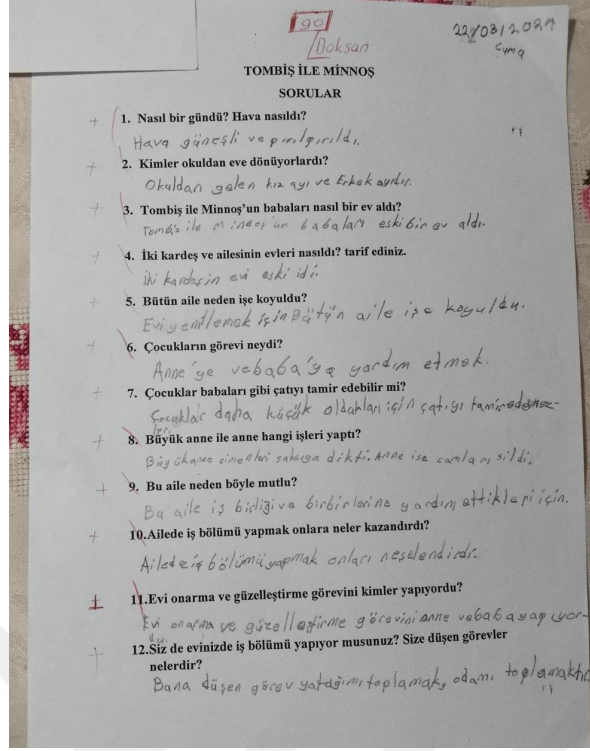 90
Doksan
22/03/2024
Cuma
TOMBİŞ İLE MİNNOŞ
SORULAR
+ 1. Nasıl bir gündü? Hava nasıldı?
Hava güneşli ve pırılpırıldı.
+ 2. Kimler okuldan eve dönüyorlardı?
Okuldan gelen kız ayı ve Erkek ayıdır.
+ 3. Tombiş ile Minnoş'un babaları nasıl bir ev aldı?
Tombiş ile minnoş'un babaları eski bir ev aldı.
+ 4. İki kardeş ve ailesinin evleri nasıldı? tarif ediniz.
İki kardeşin evi eski idi.
+ 5. Bütün aile neden işe koyuldu?
Evi yenilemek için Bütün aile işe koyuldu.
+ 6. Çocukların görevi neydi?
Anne'ye ve baba'ya yardım etmek.
+ 7. Çocuklar babaları gibi çatıyı tamir edebilir mi?
Çocuklar daha küçük oldukları için çatıyı tamir edemez-
ler.
+ 8. Büyük anne ile anne hangi işleri yaptı?
Büyükanne çimenleri saksıya dikti. Anne ise camları sildi.
+ 9. Bu aile neden böyle mutlu?
Bu aile iş birliği ve birbirlerine yardım ettikleri için.
+ 10.Ailede iş bölümü yapmak onlara neler kazandırdı?
Ailede iş bölümü yapmak onları neşelendirdi.
+ 11.Evi onarma ve güzelleştirme görevini kimler yapıyordu?
Evi onarma ve güzelleştirme görevini anne ve baba yapıyor-
du.
+ 12.Siz de evinizde iş bölümü yapıyor musunuz? Size düşen görevler
nelerdir?
Bana düşen görev yatağımı toplamak, odamı toplamaktır.